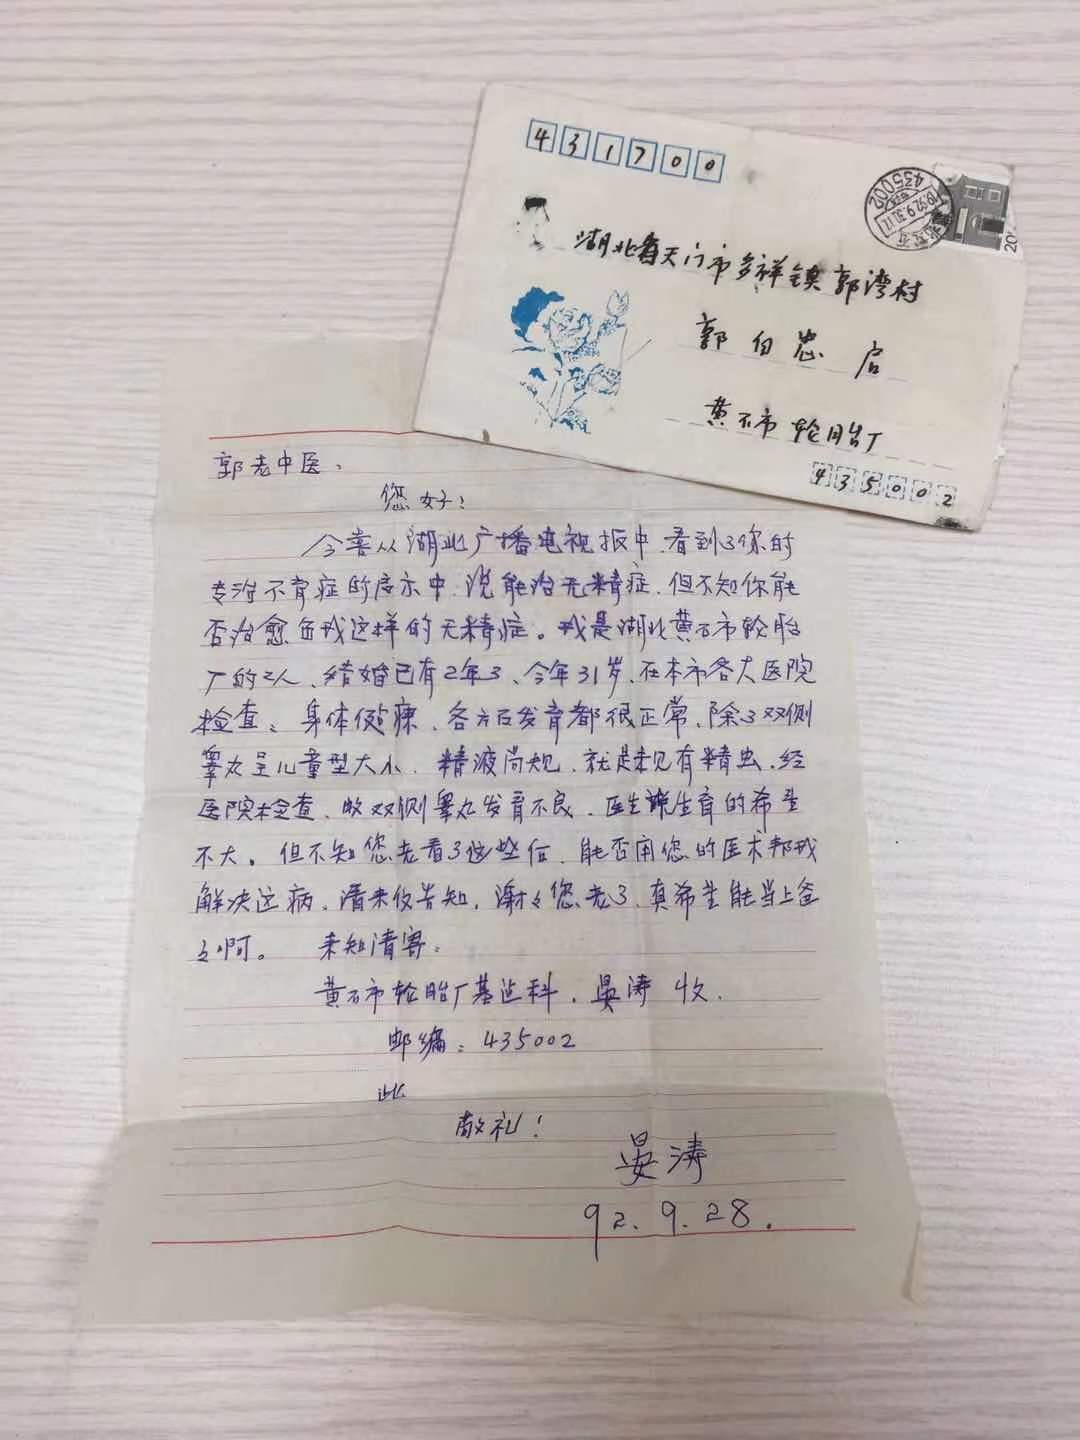 431700
435002
1992.9.30.17
20
湖北省天门市多祥镇郭湾村
郭自忠 启
黄石市轮胎厂
435002
郭老中医、
您好!
今喜从湖北广播电视报中、看到了你的
专治不育症的启示中、说能治无精症、但不知你能
否治愈向我这样的无精症。我是湖北黄石市轮胎
厂的工人、结婚已有2年了、今年31岁、在本市各大医院
检查、身体健康、各方面发育都很正常、除了双侧
睾丸呈儿童型大小、精液常规、就是未见有精虫、经
医院检查、做双侧睾丸发育不良、医生说生育的希望
不大。但不知您老看了这些信、能否用您的医术帮我
解决这病、请来信告知、谢々您老了、真希望能当上爸
々啊。 来知请寄:
黄石市轮胎厂基运科、晏涛 收、
邮编:435002
此
敬礼!
晏涛
92.9.28.